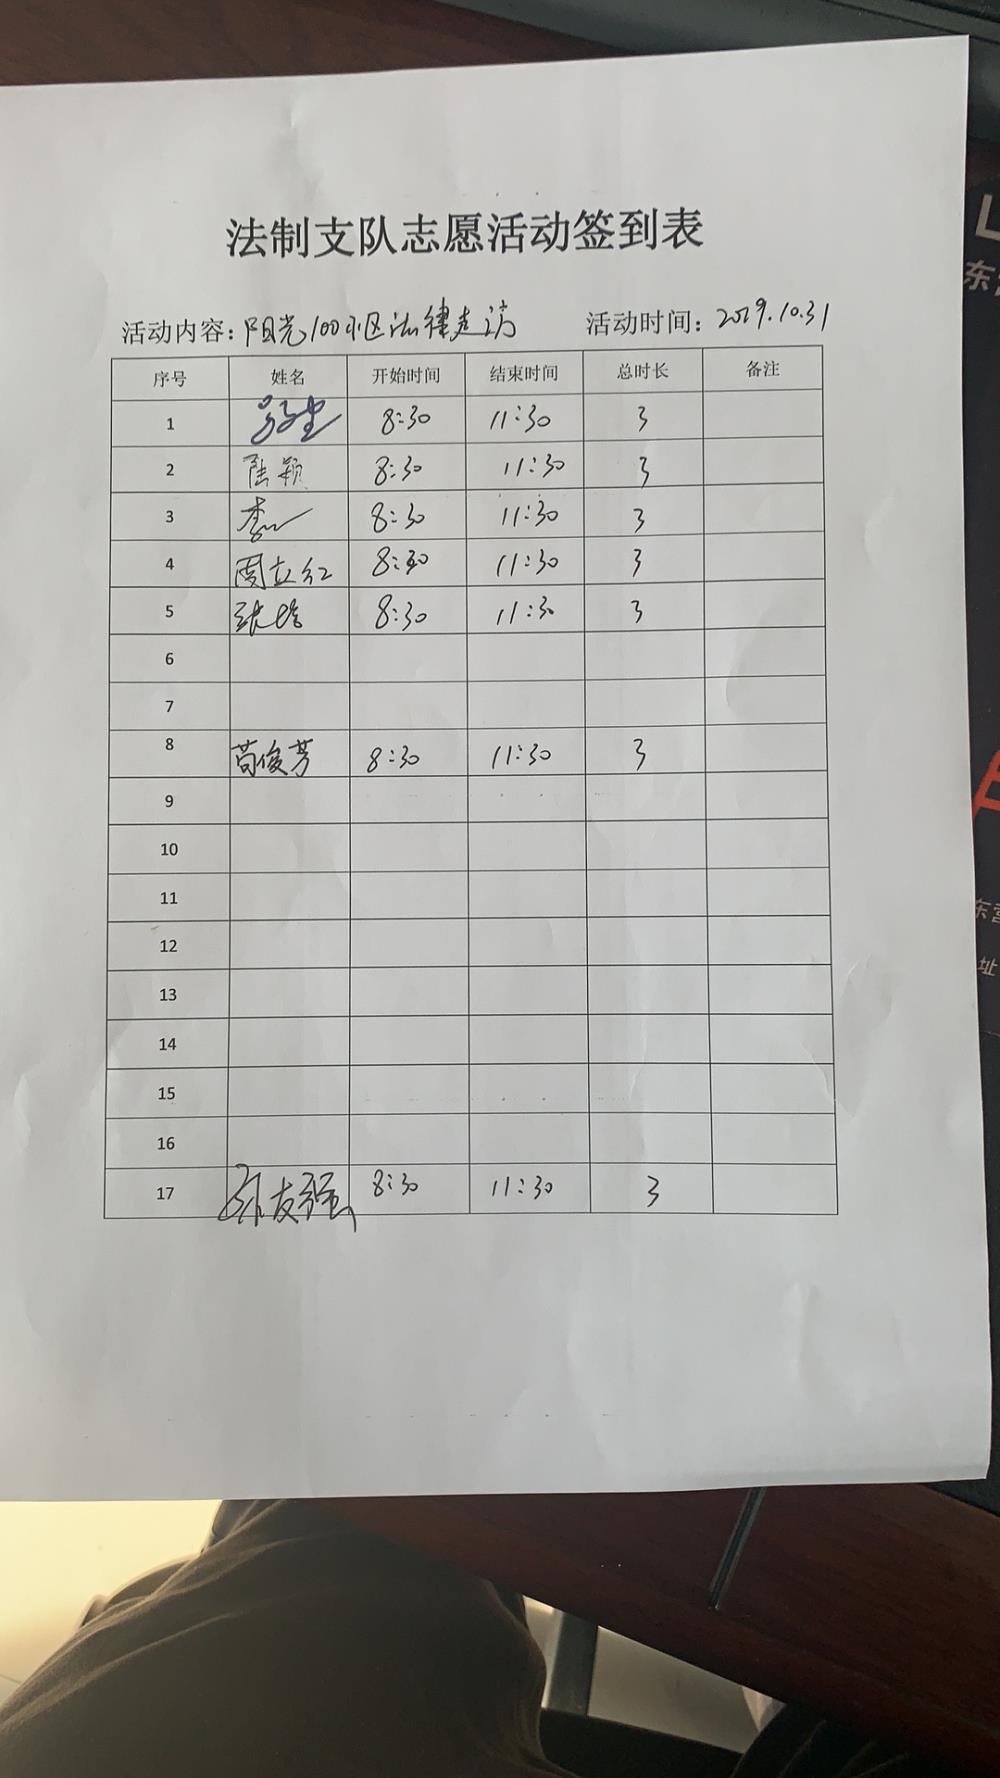 法制支队志愿活动签到表
活动内容：阳光100小区法律走访 活动时间：2019.10.31
序号 姓名 开始时间 结束时间 总时长 备注
1 8:30 11:30 3
2 陆颖 8:30 11:30 3
3 8:30 11:30 3
4 周立红 8:30 11:30 3
5 8:30 11:30 3
6
7
8 苟俊芳 8:30 11:30 3
9
10
11
12
13
14
15
16
17 孙友强 8:30 11:30 3
东
东营
址